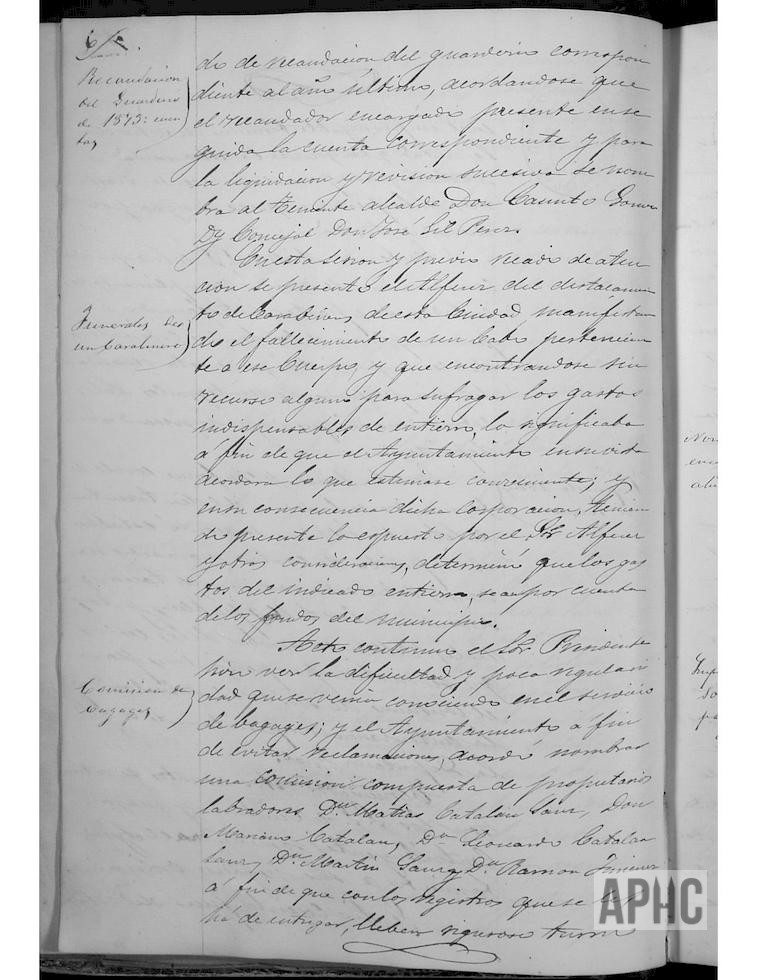 Recaudacion
del Guarderio
de 1873: cuen
tas
do de recaudacion del guarderio correspon
diente al año último, acordandose que
el recaudador encargado presente ense
guida la cuenta correspondiente y para
la liquidacion y revision sucesiva se nom
bra al Teniente alcalde Don Casimto
Dy Concejal Don José Gil Perez.
Funerales de
un Carabinero
En esta sesion y previo recado de aten
cion se presentó el Alferez del destacamen
to de Carabineros de esta Ciudad, manifestan
do el fallecimiento de un Cabo pertenecien
te a ese Cuerpo, y que encontrandose sin
recurso alguno para sufragar los gastos
indispensables de entierro, lo significaba
á fin de que el Ayuntamiento en su vista
acordara lo que estimase conveniente; y
en su consecuencia dicha Corporacion, tenien
do presente lo espuesto por el Sor. Alferez
y otras consideraciones, determinó que los gas
tos del indicado entierro, sean por cuenta
de los fondos del municipio.
Comision de
bagages
Acto continuo el Sor. Presidente
hizo ver la dificultad y poca regulari
dad que se venia conociendo en el servicio
de bagages; y el Ayuntamiento á fin
de evitar reclamaciones, acordó nombrar
una Comision compuesta de propietarios
labradores Dn. Matias Catalan Sanz, Don
Mariano Catalan, Dn Leonardo Catalan
Sanz, Dn. Martin Sanz y Dn. Ramon Jimenez
á fin de que con los registros que se les
há de entregar, lleben rigoroso turno
APHC